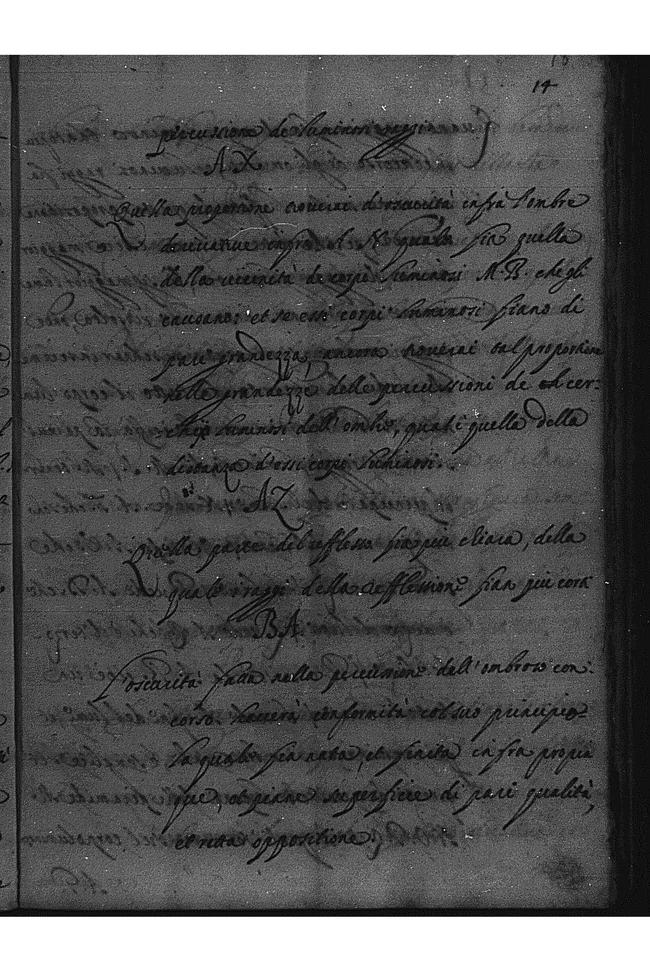 14
percussione de luminosi raggi.
AX
Quella proportione troverai di oscurità infra l'ombre
derivative infra l. N. quale fia quella
della vicinità de corpi luminosi M. B. che gli
causano: et se essi corpi luminosi fiano di
pari grandezza, ancora troverai tal proportione
nelle grandezze delle percussioni de cer:
chij luminosi dell'ombre, quali quella della
distanza d'essi corpi luminosi.
AZ
Quella parte del refflesso fia più chiara, della
quale i raggi della refflessione fian più corti
BA.
L'oscurità fatta nella percussione dell'ombroso con:
corso haverà conformità col suo principio
la quale fia nata, et finita infra propin
que, et piane superficie di pari qualità,
et retta oppositione.